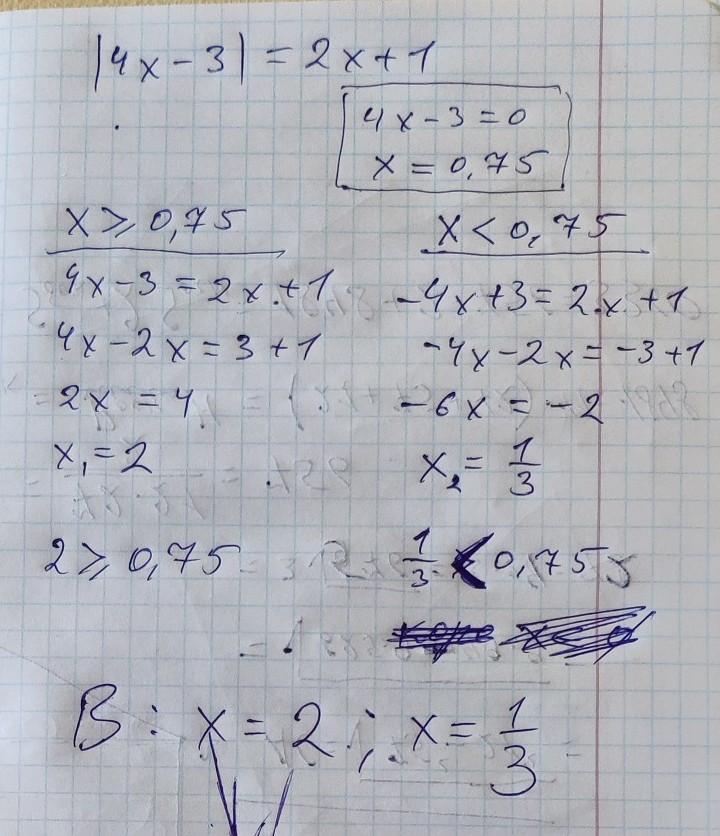 |4x-3| = 2x+1
4x-3=0
x = 0,75
x ⩾ 0,75
4x-3 = 2x+1
4x-2x = 3+1
2x = 4
x₁ = 2
2 ⩾ 0,75
x < 0,75
-4x+3 = 2x+1
-4x-2x = -3+1
-6x = -2
x₂ = 1/3
1/3 < 0,75
В: x = 2; x = 1/3